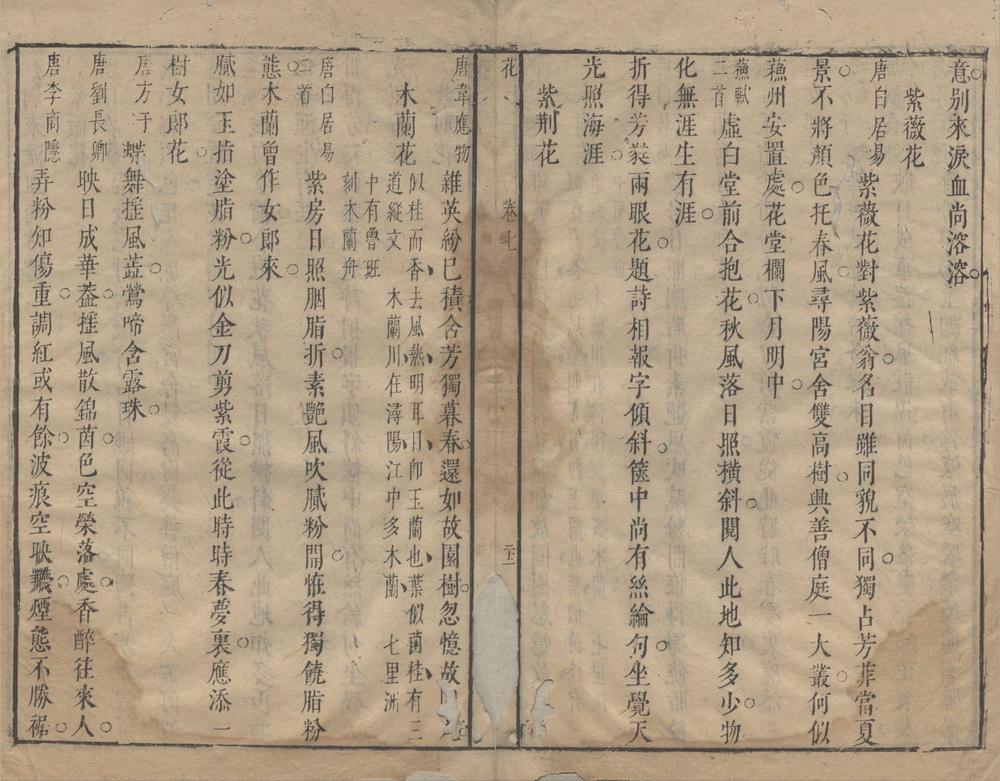 意別來淚血尚溶溶
紫薇花
唐白居易 紫薇花對紫薇翁名目雖同貌不同獨占芳菲當夏
景不將顏色托春風尋陽宮舍雙高樹興善僧庭一大叢何似
蘓州安置處花堂欄下月明中
蘓軾二首 虛白堂前合抱花秋風落日照橫斜閱人此地知多少物
化無涯生有涯
折得芳蕤兩眼花題詩相報字傾斜篋中尚有絲綸句坐覺天
光照海涯
紫荆花
花 卷七
唐韋應物 雜英紛已積含芳獨暮春還如故園樹忽憶故
木蘭花 似桂而香去風熱明耳目卽玉蘭也葉似菌桂有三
道縱文 木蘭川在潯陽江中多木蘭 七里洲
中有魯班
刻木蘭舟
唐白居易二首 紫房日照胭脂折素艷風吹膩粉開惟得獨饒脂粉
態木蘭曾作女郎來
膩如玉指塗脂粉光似金刀剪紫霞從此時時春夢裏應添一
樹女郎花
唐方干 蝶舞搖風蕋鶯啼含露珠
唐劉長卿 映日成華葢搖風散錦茵色空榮落處香醉往來人
唐李商隱 弄粉知傷重調紅或有餘波痕空映襪煙態不勝裾